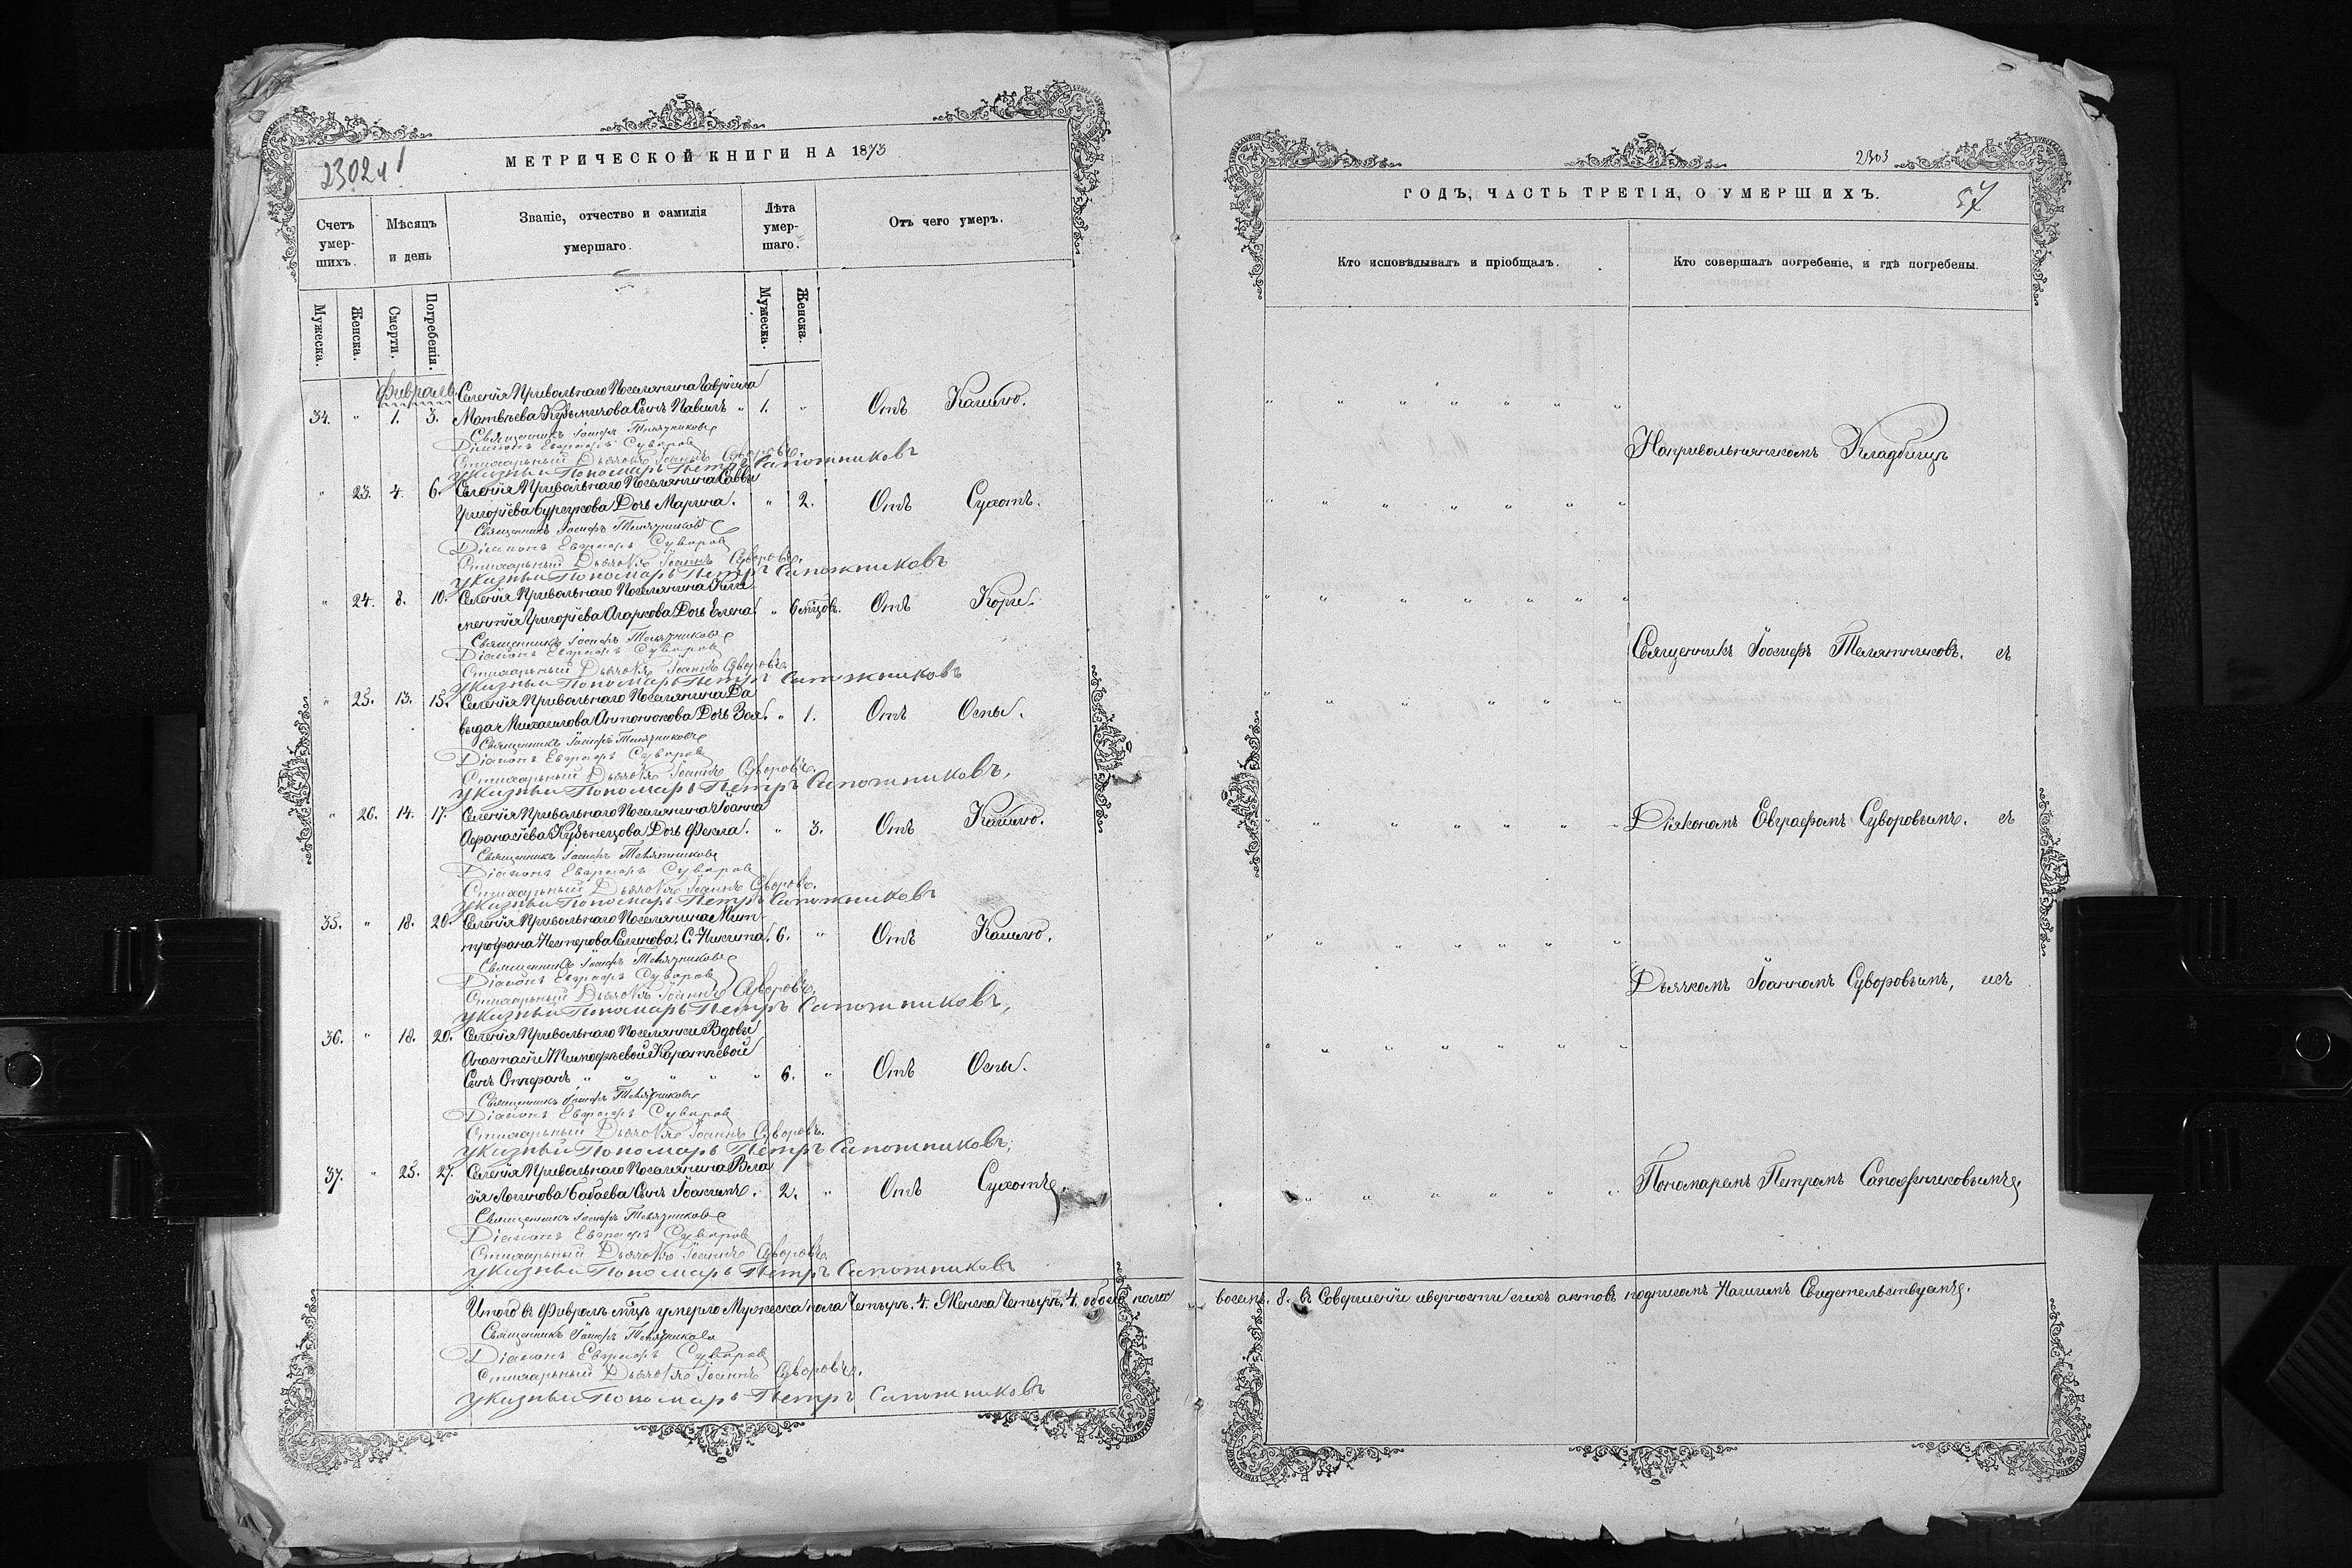 2302 и 1
МЕТРИЧЕСКОЙ КНИГИ НА 1873
Счетъ умер-шихъ.
Мѣсяцъ и день
Званіе, отчество и фамилія умершаго.
Лѣта умер-шаго.
Отъ чего умеръ.
Мужеска.
Женска.
Смерти.
Погребенія.
Мужеска.
Женска.
Февраль
Селенія Привольнаго Поселянина Гавріила
34. " 1. 3. Матвѣева Кузьмичова Сынъ Павилъ " 1. " Отъ Кашлю.
Священникъ Іосифъ Телятниковъ
Діаконъ Евграфъ Суворов
Стихарный Дьячокъ Іоаннъ Суворовъ.
Указный Пономарь Петръ Сапожниковъ
" 23. 4. 6. Селенія Привольнаго Поселянина Саввы
Григорієва Бурцкова Дочь Марина. " 2. Отъ Сухотъ.
Священникъ Іосифъ Телятниковъ
Діаконъ Евграфъ Суворов
Стихарный Дьячокъ Іоаннъ Суворовъ.
Указный Пономарь Петръ Сапожниковъ
" 24. 8. 10. Селенія Привольнаго Поселянина Кли
ментія Григорієва Агаркова Дочь Елена. " 6 мѣцовъ. Отъ Кори.
Священникъ Іосифъ Телятниковъ
Діаконъ Евграфъ Суворов
Стихарный Дьячокъ Іоаннъ Суворовъ.
Указный Пономарь Петръ Сапожниковъ
" 25. 13. 15. Селенія Привольнаго Поселянина Да
выда Михаилова Антонюкова Дочь Зоя. " 1. Отъ Оспы.
Священникъ Іосифъ Телятниковъ
Діаконъ Евграфъ Суворов
Стихарный Дьячокъ Іоаннъ Суворовъ.
Указный Пономарь Петръ Сапожниковъ,
" 26. 14. 17. Селенія Привольнаго Поселянина Іоанна
Афанасієва Кузьнецова Дочь Фекла. " 3. Отъ Кашлю.
Священникъ Іосифъ Телятниковъ
Діаконъ Евграфъ Суворов
Стихарный Дьячокъ Іоаннъ Суворовъ.
Указный Пономарь Петръ Сапожниковъ
35. " 18. 20. Селенія Привольнаго Поселянина Мит
трофана Нестерова Селинова, С. Никита. 6. " Отъ Кашлю.
Священникъ Іосифъ Телятниковъ
Діаконъ Евграфъ Суворов
Стихарный Дьячокъ Іоаннъ Суворовъ.
Указный Пономарь Петръ Сапожниковъ,
36. " 18. 20. Селенія Привольнаго Поселянки Вдовы
Анастасіи Тимофѣевой Коротѣевой
Сынъ Стефанъ " " " " " 6. " Отъ Оспы.
Священникъ Іосифъ Телятниковъ
Діаконъ Евграфъ Суворов
Стихарный Дьячокъ Іоаннъ Суворовъ.
Указный Пономарь Петръ Сапожниковъ,
37. " 25. 27. Селенія Привольнаго Поселянина Вла
сія Логинова Бабаева Сынъ Іоакимъ. 2. " Отъ Сухотъ.
Священникъ Іосифъ Телятниковъ
Діаконъ Евграфъ Суворов
Стихарный Дьячокъ Іоаннъ Суворовъ.
Указный Пономарь Петръ Сапожниковъ
Итого въ Февралѣ мцѣ умерло Мужеска пола Четыре. 4. Женска Четыре. 4. обоего пола
Священникъ Іосифъ Телятниковъ
Діаконъ Евграфъ Суворов
Стихарный Дьячокъ Іоаннъ Суворовъ.
Указный Пономарь Петръ Сапожниковъ
2303
ГОДЪ, ЧАСТЬ ТРЕТІЯ, О УМЕРШИХЪ.
57
Кто исповѣдывалъ и пріобщалъ.
Кто совершалъ погребеніе, и гдѣ погребены.
Напривольнянскомъ Кладбищѣ
Священникъ Іосифъ Телятниковъ. съ
Діякономъ Евграфомъ Суворовымъ. съ
Дьячкомъ Іоанномъ Суворовымъ, исъ
Пономаремъ Петромъ Сапожниковымъ.
восемь. 8. въ Совершеніи иверности сихъ актовъ подписомъ Нашимъ Свидетельствуемъ.